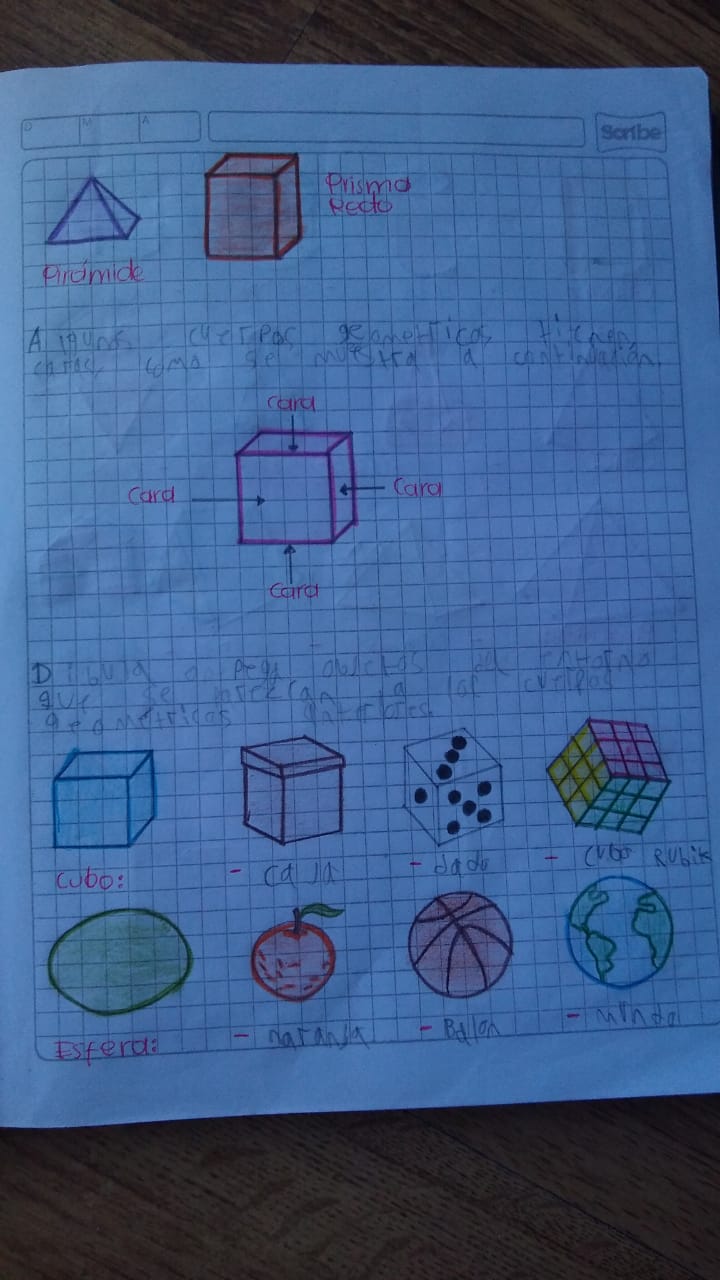 D M A
Scribe
Prisma
Recto
Pirámide
Algunos cuerpos geometricos tienen
caras, como se muestra a continuación
cara
cara
cara
cara
Dibuja o pega objetos del entorno
que se parezcan a los cuerpos
geométricos anteriores.
Cubo: - caja - dado - cubo Rubik
Esfera: - naranja - Balon - mundo